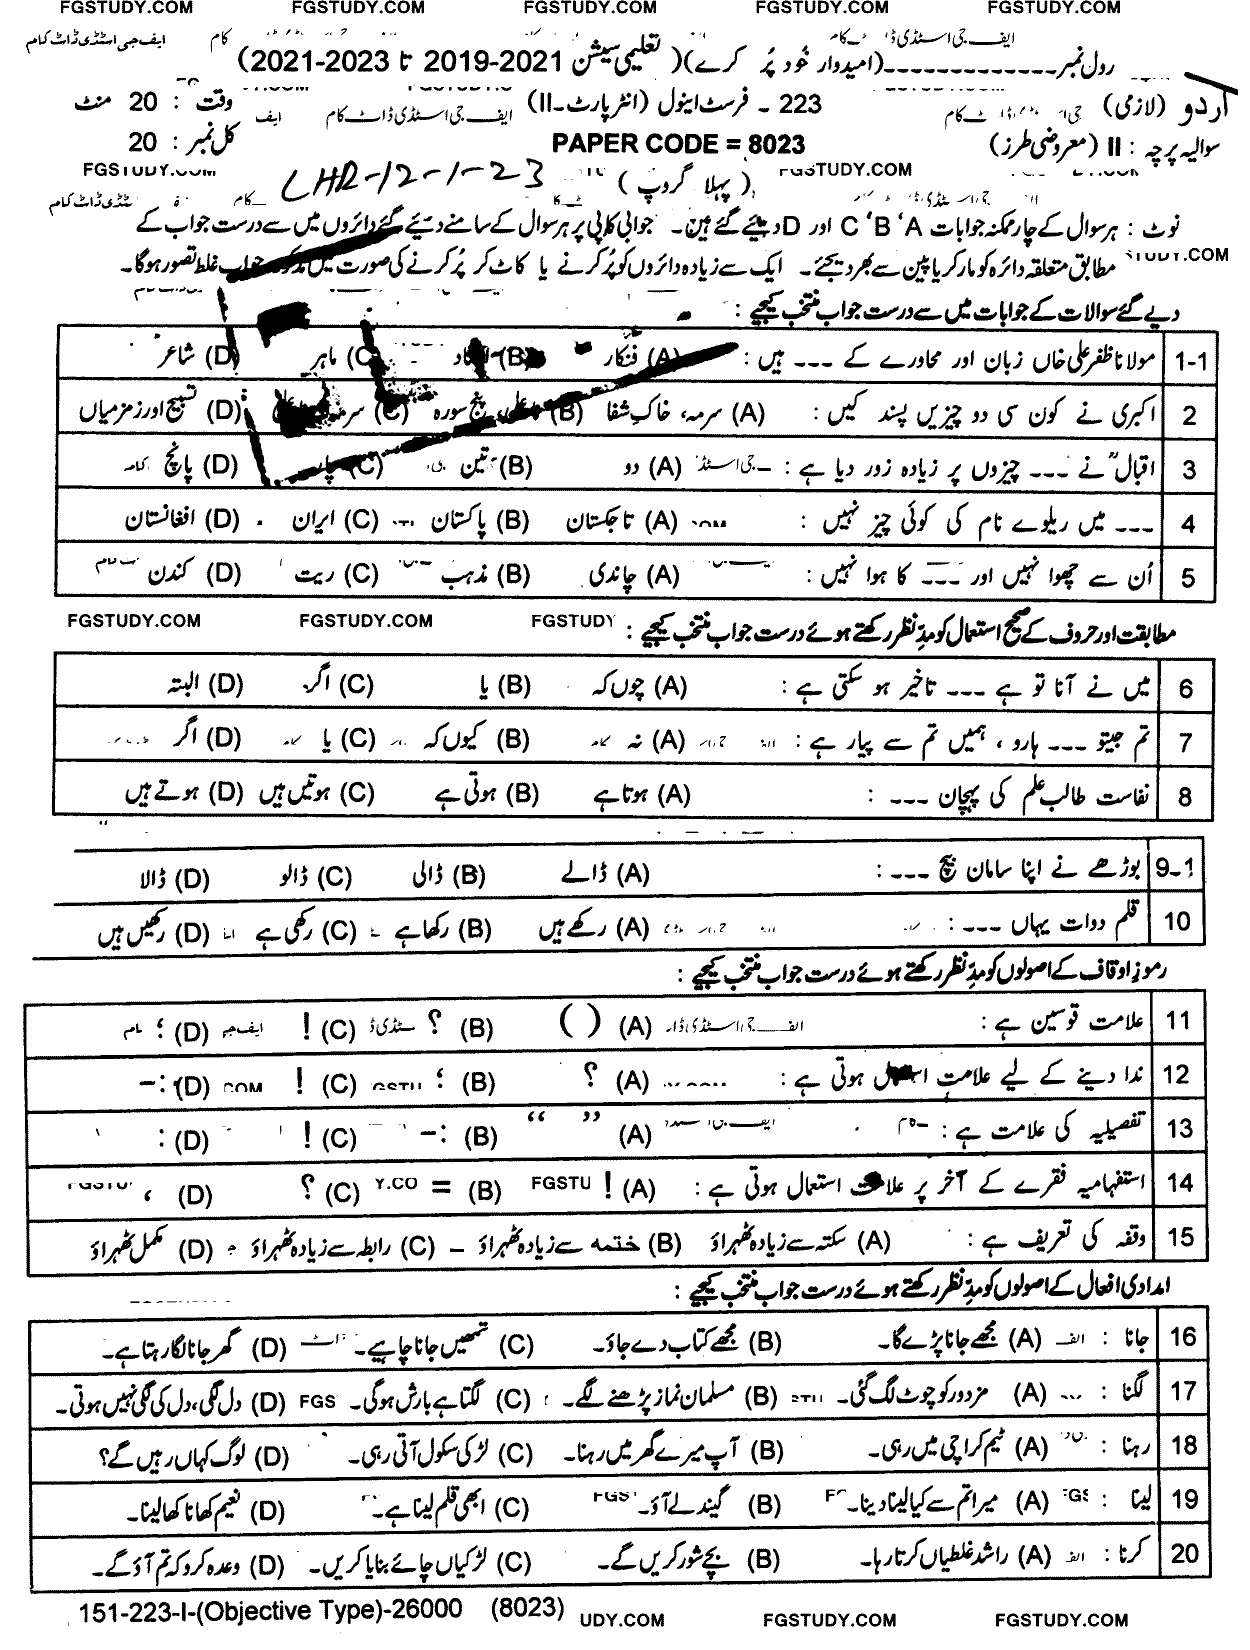 FGSTUDY.COM FGSTUDY.COM FGSTUDY.COM FGSTUDY.COM FGSTUDY.COM
رول نمبر ـ ـ ـ ـ ـ ـ ـ ـ ـ ـ ـ ـ ـ (امیدوار خود پُر کرے) (تعلیمی سیشن 2021-2019 تا 2023-2021)
اردو (لازمی) 223 ۔ فرسٹ اینول (انٹر پارٹ ۔ II) وقت : 20 منٹ
سوالیہ پرچہ : II (معروضی طرز) PAPER CODE = 8023 کل نمبر : 20
(پہلا گروپ) LHR-12-1-23
نوٹ : ہر سوال کے چار ممکنہ جوابات A ' B ' C اور D دیئے گئے ہیں۔ جوابی کاپی پر ہر سوال کے سامنے دیئے گئے دائروں میں سے درست جواب کے
مطابق متعلقہ دائرہ کو مارکر یا پین سے بھر دیجئے۔ ایک سے زیادہ دائروں کو پُر کرنے یا کاٹ کر پُر کرنے کی صورت میں مذکورہ جواب غلط تصور ہو گا۔
دیے گئے سوالات کے جوابات میں سے درست جواب منتخب کیجیے :
1-1 مولانا ظفر علی خاں زبان اور محاورے کے ۔۔۔ ہیں : (A) فنکار (B) (C) ماہر (D) شاعر
2 اکبری نے کون سی دو چیزیں پسند کیں : (A) سرمہ، خاکِ شفا (B) پنج سورہ (C) (D) تسبیح اور زمزمیاں
3 اقبالؒ نے ۔۔۔ چیزوں پر زیادہ زور دیا ہے : (A) دو (B) تین (C) چار (D) پانچ
4 ۔۔۔ میں ریلوے نام کی کوئی چیز نہیں : (A) تاجکستان (B) پاکستان (C) ایران (D) افغانستان
5 اُن سے چھوا نہیں اور ۔۔۔ کا ہوا نہیں : (A) چاندی (B) مذہب (C) ریت (D) کندن
FGSTUDY.COM FGSTUDY.COM FGSTUDY
مطابقت اور حروف کے صحیح استعمال کو مدِّنظر رکھتے ہوئے درست جواب منتخب کیجیے :
6 میں نے آنا تو ہے ۔۔۔ تاخیر ہو سکتی ہے : (A) چوں کہ (B) یا (C) اگر (D) البتہ
7 تم جیتو ۔۔۔ ہارو ، ہمیں تم سے پیار ہے : (A) نہ (B) کیوں کہ (C) یا (D) اگر
8 نفاست طالب علم کی پہچان ۔۔۔ : (A) ہوتا ہے (B) ہوتی ہے (C) ہوتیں ہیں (D) ہوتے ہیں
9-1 بوڑھے نے اپنا سامان بیچ ۔۔۔ : (A) ڈالے (B) ڈالی (C) ڈالو (D) ڈالا
10 قلم دوات یہاں ۔۔۔ : (A) رکھے ہیں (B) رکھا ہے (C) رکھی ہے (D) رکھیں ہیں
رموزِ اوقاف کے اصولوں کو مدِّنظر رکھتے ہوئے درست جواب منتخب کیجیے :
11 علامت قوسین ہے : (A) ( ) (B) ؟ (C) ! (D) ؛
12 ندا دینے کے لیے علامت استعمال ہوتی ہے : (A) ؟ (B) ؛ (C) ! (D) :-
13 تفصیلیہ کی علامت ہے : (A) “ ” (B) :- (C) ! (D) :
14 استفہامیہ فقرے کے آخر پر علامت استعمال ہوتی ہے : (A) ! (B) = (C) ؟ (D) ،
15 وقفہ کی تعریف ہے : (A) سکتہ سے زیادہ ٹھہراؤ (B) ختمہ سے زیادہ ٹھہراؤ (C) رابطہ سے زیادہ ٹھہراؤ (D) مکمل ٹھہراؤ
امدادی افعال کے اصولوں کو مدِّنظر رکھتے ہوئے درست جواب منتخب کیجیے :
16 جانا : (A) مجھے جانا پڑے گا۔ (B) مجھے کتاب دے جاؤ۔ (C) تمھیں جانا چاہیے۔ (D) گھر جانا لگا رہتا ہے۔
17 لگنا : (A) مزدور کو چوٹ لگ گئی۔ (B) مسلمان نماز پڑھنے لگے۔ (C) لگتا ہے بارش ہو گی۔ (D) دل لگی، دل کی لگی نہیں ہوتی۔
18 رہنا : (A) ٹیم کراچی میں رہی۔ (B) آپ میرے گھر میں رہنا۔ (C) لڑکی سکول آتی رہی۔ (D) لوگ کہاں رہیں گے؟
19 لینا : (A) میرا تم سے کیا لینا دینا۔ (B) گیند لے آؤ۔ (C) ابھی قلم لینا ہے۔ (D) نعیم کھانا کھا لینا۔
20 کرنا : (A) راشد غلطیاں کرتا رہا۔ (B) بچے شور کریں گے۔ (C) لڑکیاں چائے بنایا کریں۔ (D) وعدہ کرو کہ تم آؤ گے۔
151-223-I-(Objective Type)-26000 (8023) UDY.COM FGSTUDY.COM FGSTUDY.COM